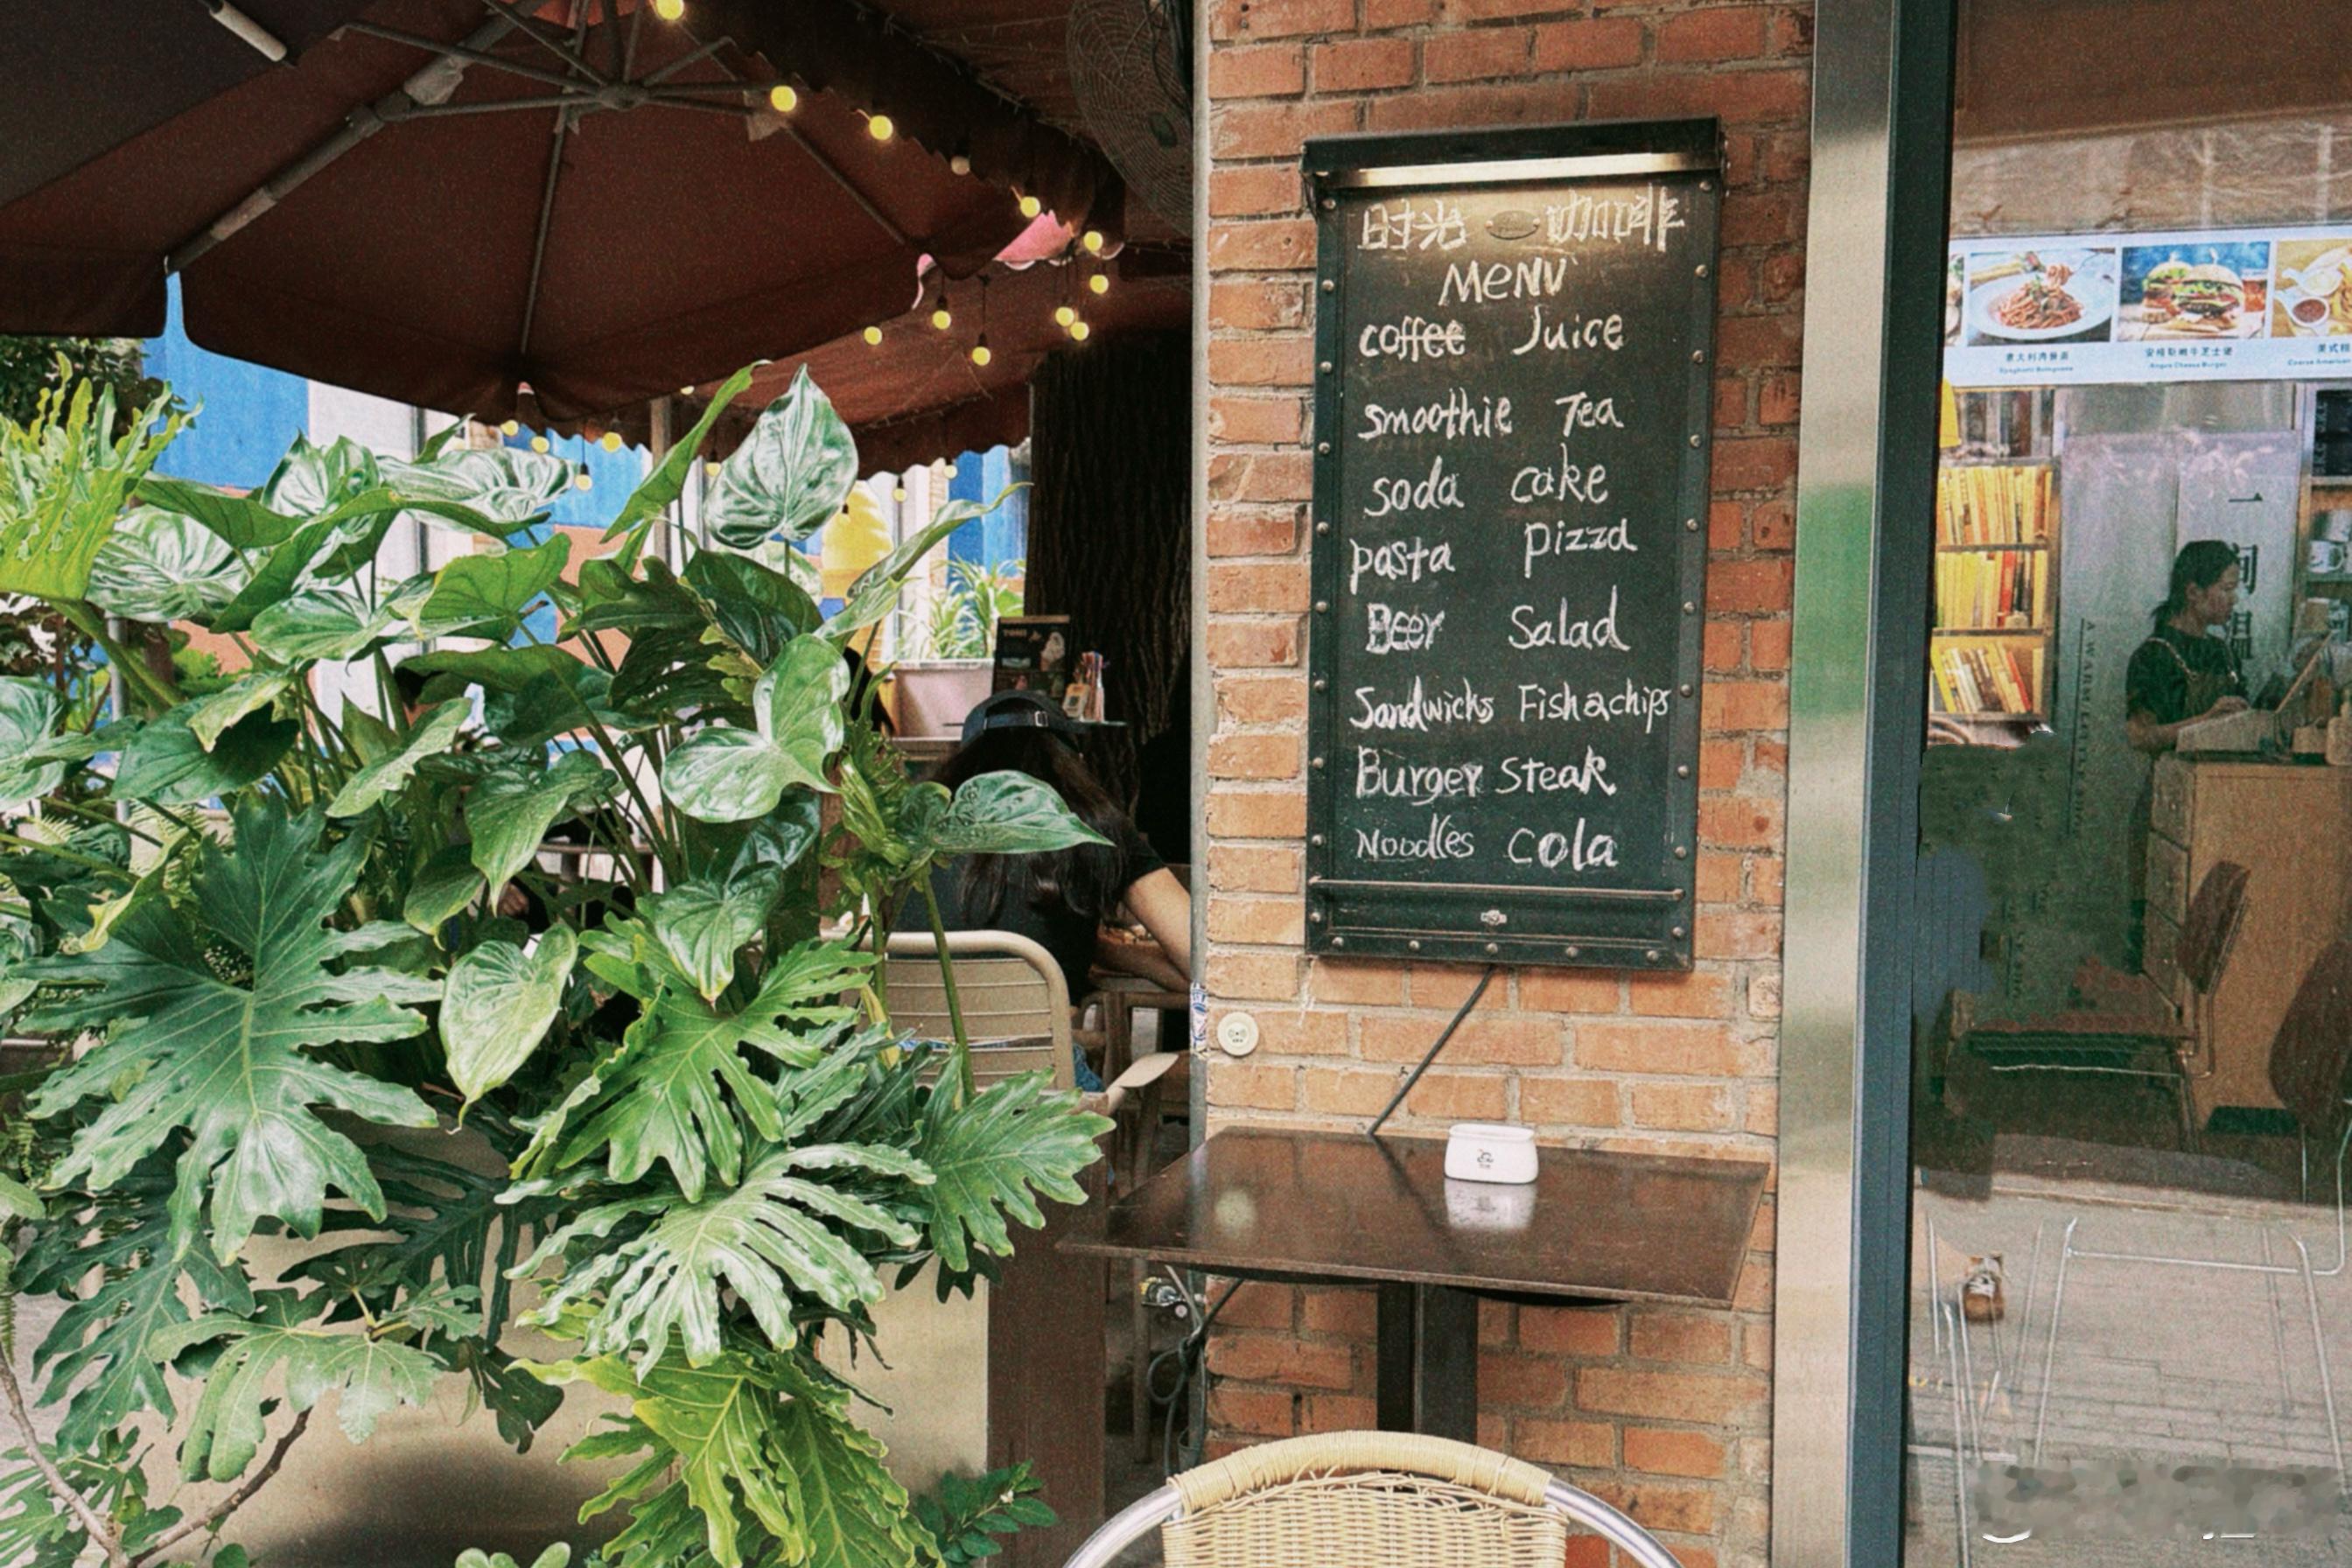 时光 咖啡
MENU
coffee Juice
smoothie Tea
soda cake
pasta Pizza
Beer Salad
Sandwichs Fish&chips
Burger Steak
Noodles cola
意大利肉酱面
Spaghetti Bolognese
安格斯嫩牛芝士堡
Angus Cheese Burger
美式
Coarse American
一间